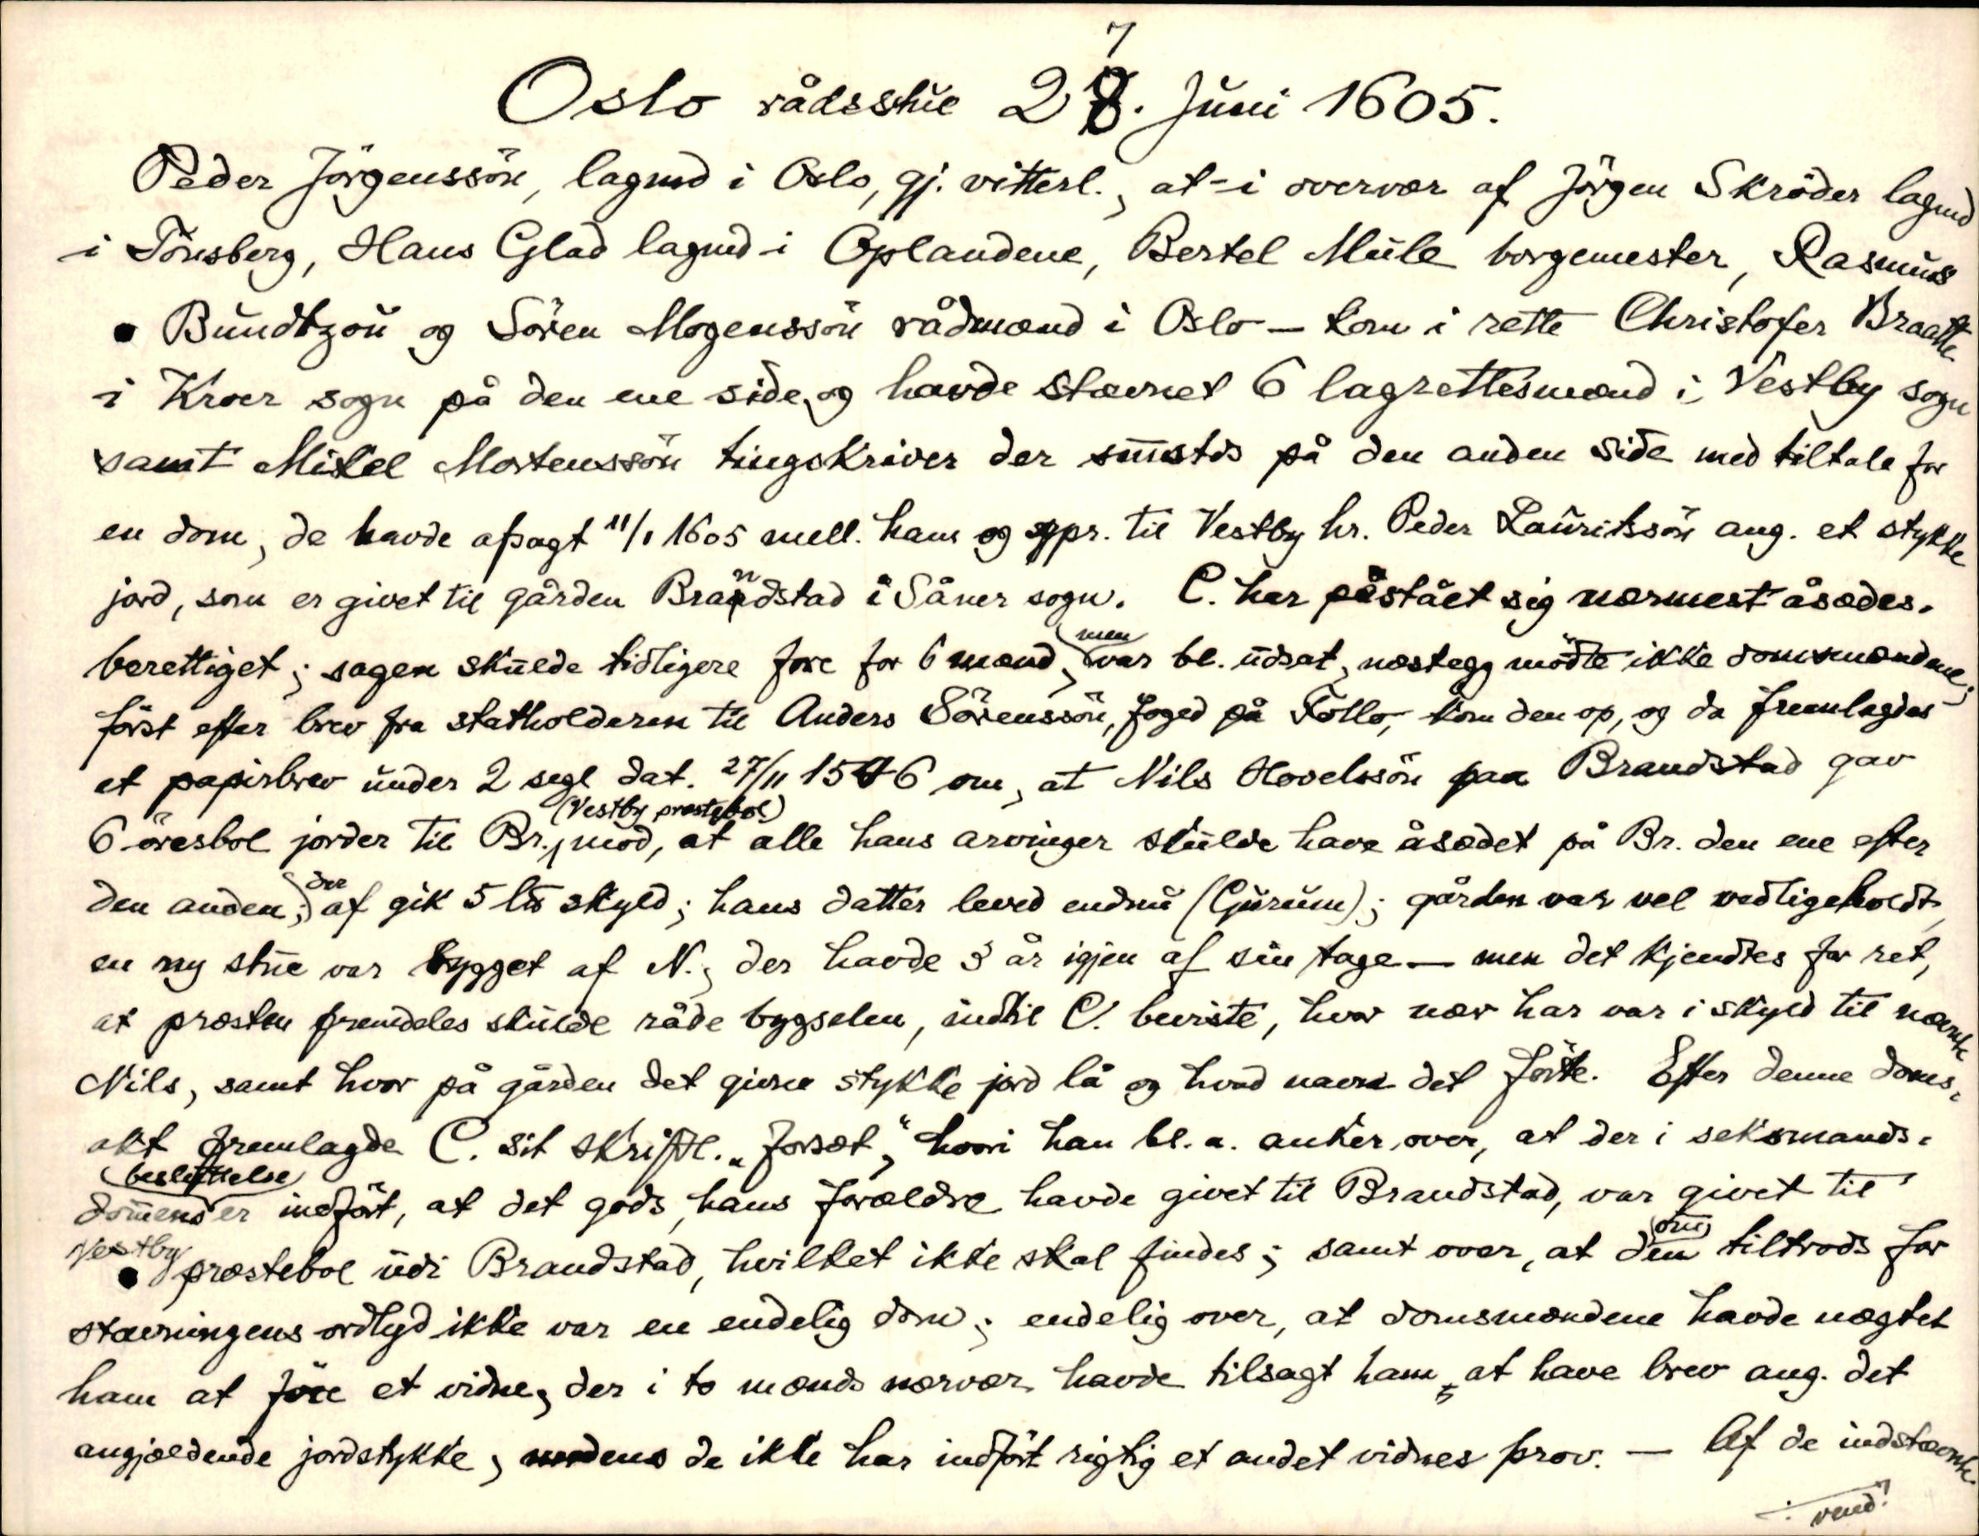 Oslo rådsstue 27. Juni 1605.
Peder Jörgenssön, lagmd i Oslo, gj. vitterl., at - i overvær af Jörgen Skröder lagmd
i Tönsberg, Hans Glad lagmd i Oplandene, Bertel Mule borgemester, Rasmus
Bundtzon og Sören Mogenssön rådmænd i Oslo - kom i rette Christofer Braatte
i Kroer sogn på den ene side, og havde stævnet 6 lagrettesmænd i Vestby sogn
samt Mikel Mortenssön tingskriver der smstds på den anden side med tiltale for
en dom, de havde afsagt 11/1 1605 mell. ham og sgpr. til Vestby hr. Peder Lauritssön ang. et stykke
jord, som er givet til gården Brandstad i Såner sogn. C. har påstået sig nærmest åsædes-
berettiget; sagen skulde tidligere fore for 6 mænd, men var bl. udsat, næstegg mödte ikke domsmændene;
först efter brev fra statholderen til Anders Sörenssön, foged på Follo, kom den op, og da fremlagdes
et papirbrev under 2 segl dat. 27/11 1546 om, at Nils Hovelssön paa Brandstad gav
6 öresbol jorder til Br. (Vestby prestebol) mod, at alle hans arvinger skulde have åsædet på Br. den ene efter
den anden; der af gik 5 lts skyld; hans datter leved endnu (Gurum); gården var vel vedligeholdt,
en ny stue var bygget af N., der havde 3 år igjen af sin tage - men det kjendtes for ret,
at præsten fremdeles skulde råde bygselen, indtil C. beviste, hvor nær han var i skyld til nævnte
Nils, samt hvor på gården det givne stykke jord lå og hvad navn det förte. Efter denne doms-
akt fremlagde C. sit skriftl. "forsæt", hvori han bl. a. anker over, at der i seksmands-
domens besluttelse er indfört, at det gods, hans forældre havde givet til Brandstad, var givet til
Vestby præstebol udi Brandstad, hvilket ikke skal findes; samt over, at den tiltrods for
stævningens ordlyd ikke var en endelig dom; endelig over, at domsmændene havde nægtet
ham at före et vidne, der i to mænds nærvær havde tilsagt ham at have brev ang. det
angjældende jordstykke, medens de ikke har indfört rigtig et andet vidnes prov. - Af de indstævnte
vend!